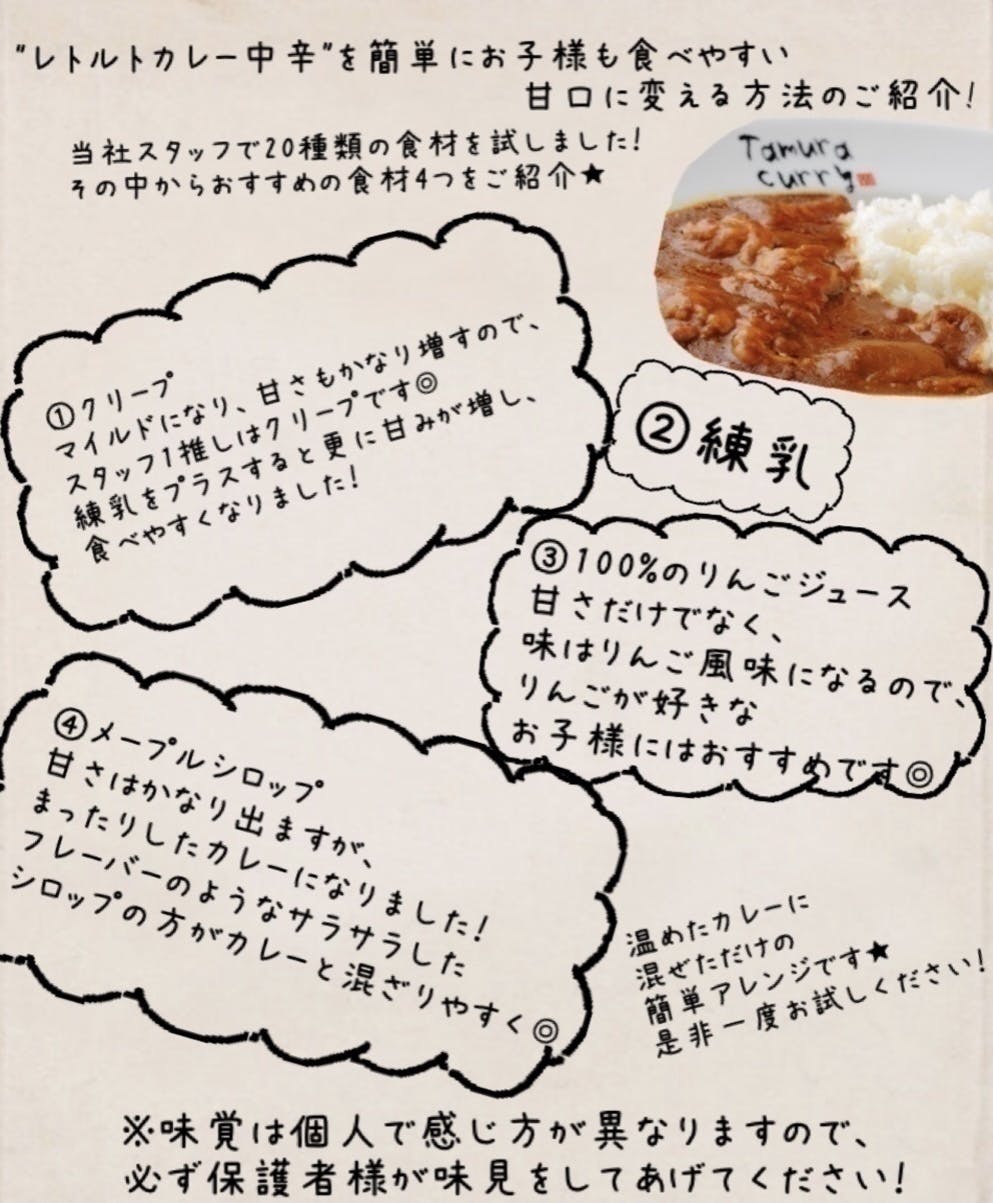 "レトルトカレー中辛"を簡単にお子様も食べやすい
甘口に変える方法のご紹介!
当社スタッフで20種類の食材を試しました!
その中からおすすめの食材4つをご紹介★
Tamura
curry
①クリープ
マイルドになり、甘さもかなり増すので、
スタッフ1推しはクリープです◎
練乳をプラスすると更に甘みが増し、
食べやすくなりました!
②練乳
③100%のりんごジュース
甘さだけでなく、
味はりんご風味になるので、
りんごが好きな
お子様にはおすすめです◎
④メープルシロップ
甘さはかなり出ますが、
まったりしたカレーになりました!
フレーバーのようなサラサラした
シロップの方がカレーと混ざりやすく◎
温めたカレーに
混ぜただけの
簡単アレンジです★
是非一度お試しください!
※味覚は個人で感じ方が異なりますので、
必ず保護者様が味見をしてあげてください!